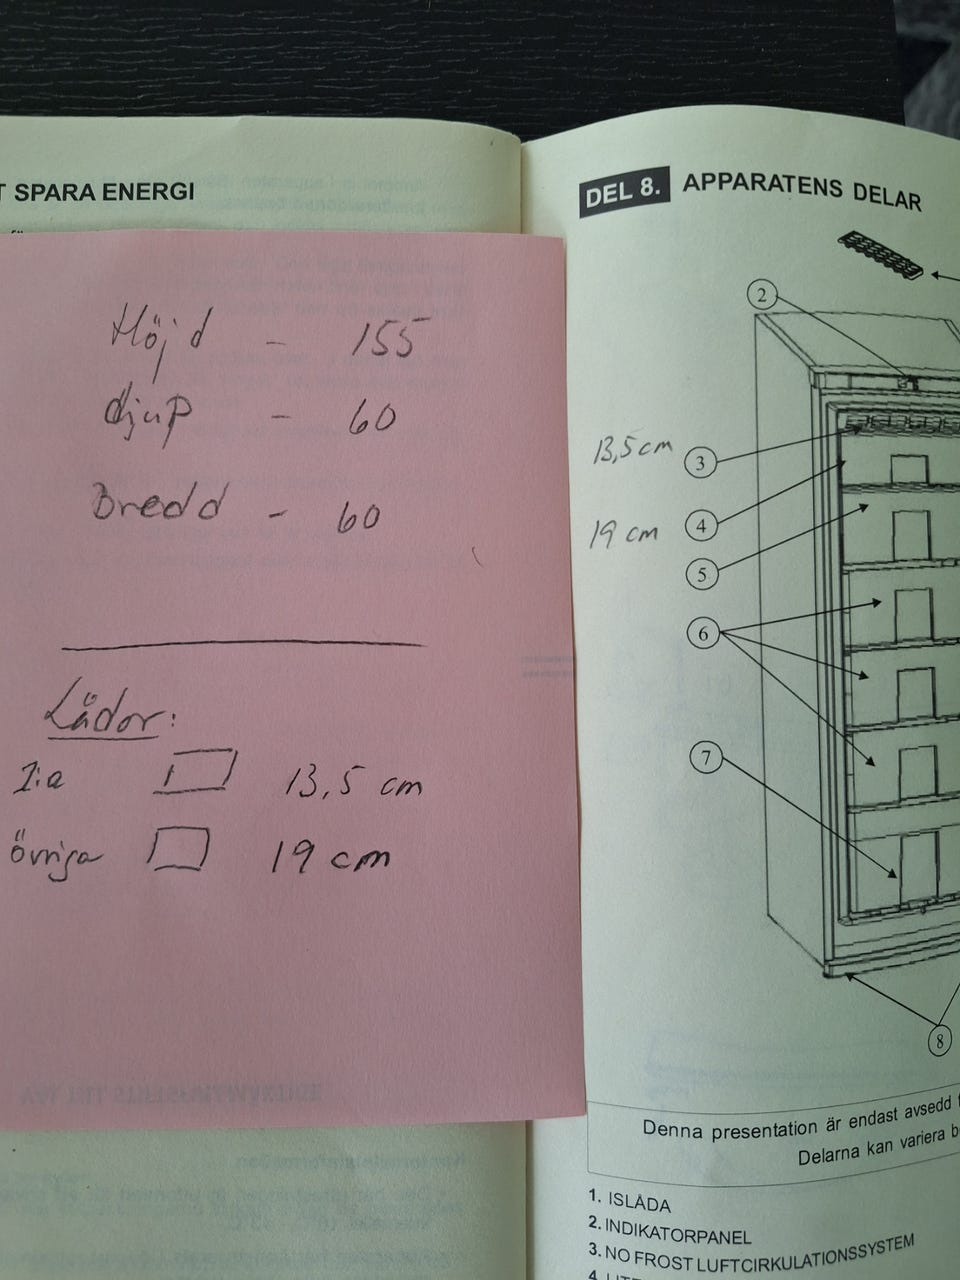 T SPARA ENERGI
Höjd - 155
djup - 60
Bredd - 60
Lådor:
1:a 13,5 cm
övriga 19 cm
DEL 8. APPARATENS DELAR
2
13,5 cm
3
19 cm
4
5
6
7
8
Denna presentation är endast avsedd
Delarna kan variera
1. ISLÅDA
2. INDIKATORPANEL
3. NO FROST LUFTCIRKULATIONSSYSTEM
4.